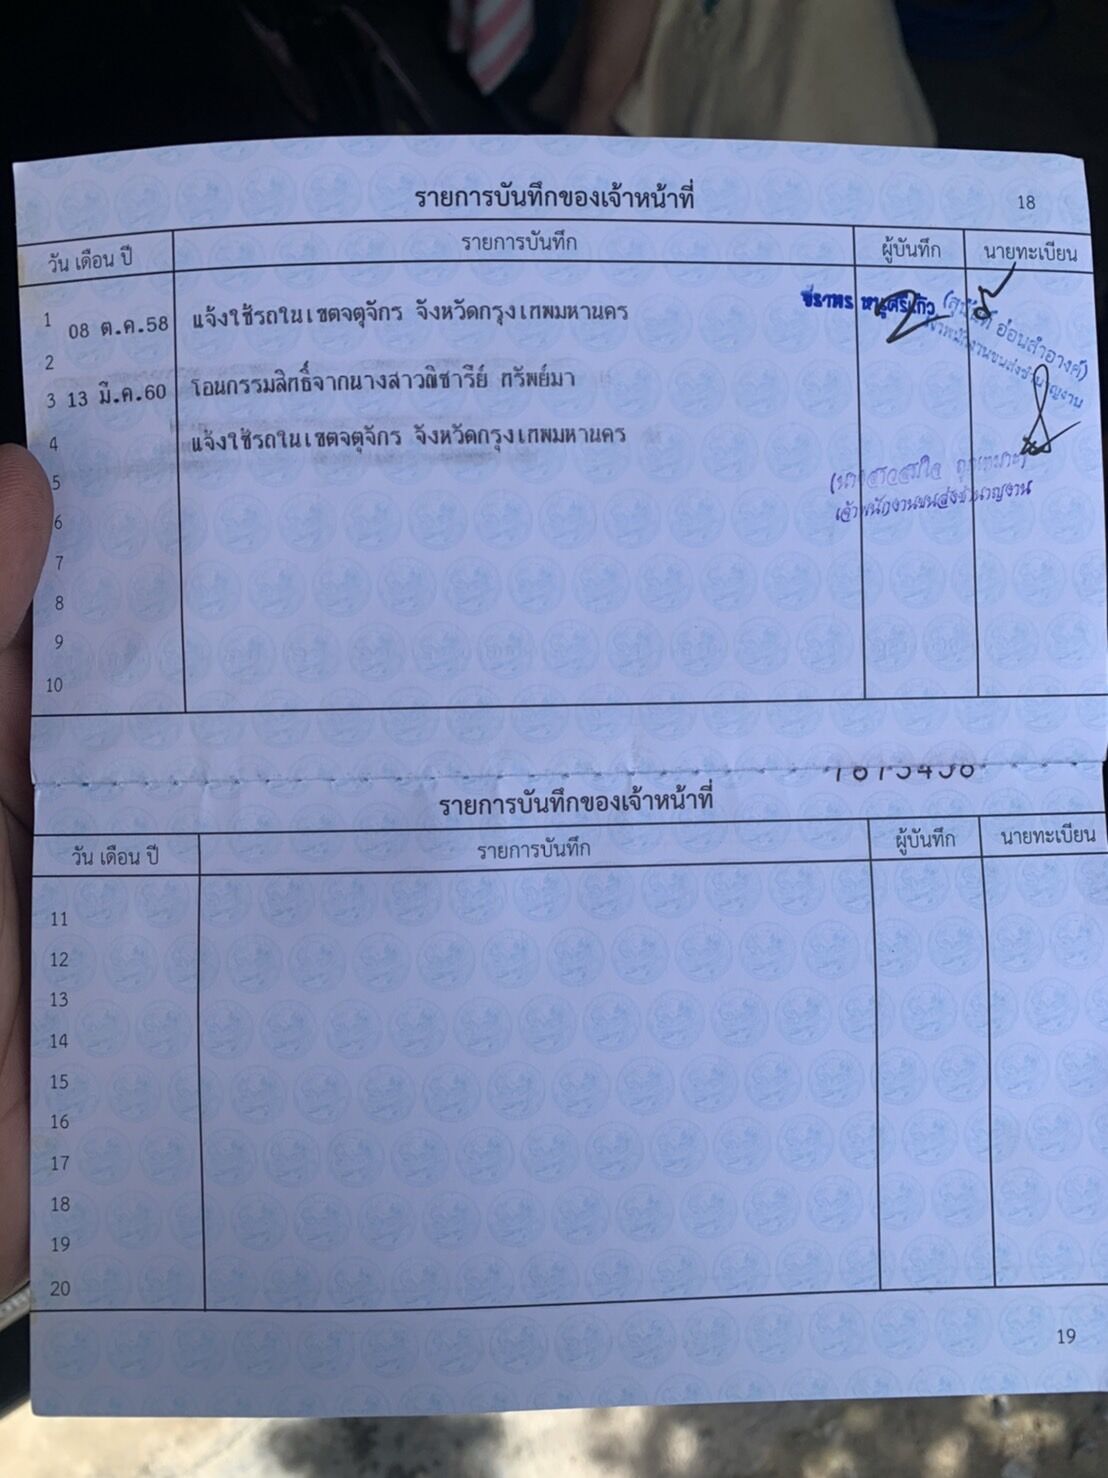 รายการบันทึกของเจ้าหน้าที่ 18
วัน เดือน ปี รายการบันทึก ผู้บันทึก นายทะเบียน
1 08 ต.ค.58 แจ้งใช้รถในเขตจตุจักร จังหวัดกรุงเทพมหานคร
หนูศรีแก้ว
อ่อนสำอางค์)
2
3 13 มี.ค.60 โอนกรรมสิทธิ์จากนางสาวณิชารีย์ ทรัพย์มา
4 แจ้งใช้รถในเขตจตุจักร จังหวัดกรุงเทพมหานคร
5
เจ้าพนักงานขนส่งชำนาญงาน
6
7
8
9
10
รายการบันทึกของเจ้าหน้าที่
วัน เดือน ปี รายการบันทึก ผู้บันทึก นายทะเบียน
11
12
13
14
15
16
17
18
19
20
19